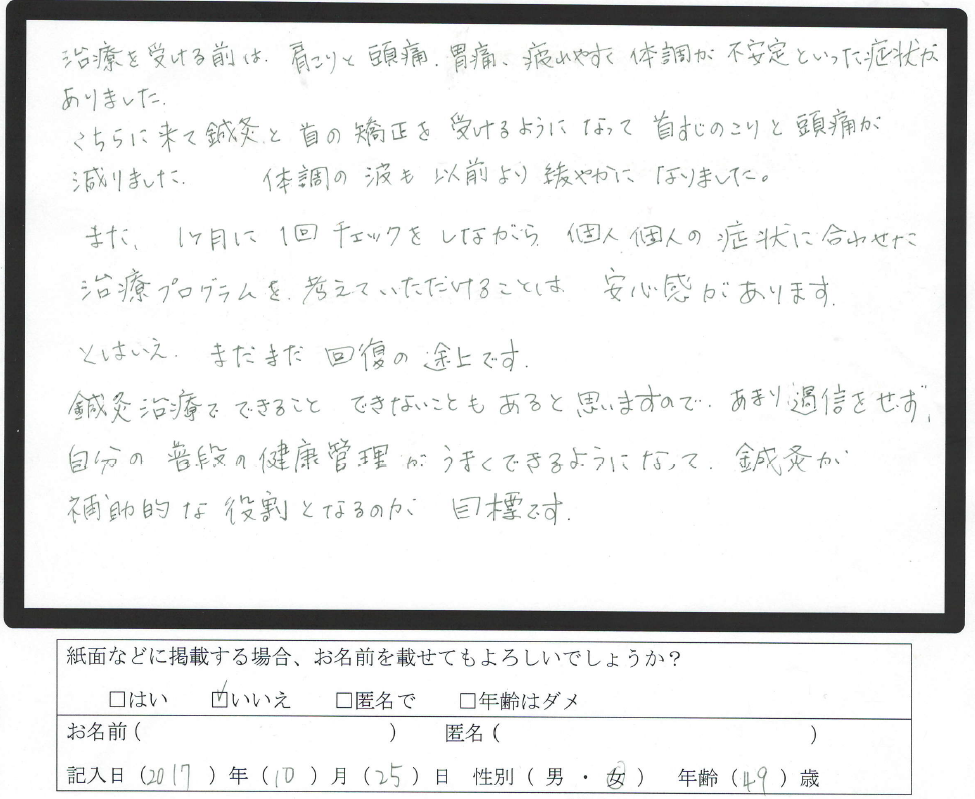 治療を受ける前は、肩こりと頭痛、胃痛、疲れやすく体調が不安定といった症状が
ありました。
こちらに来て鍼灸と首の矯正を受けるようになって首すじのこりと頭痛が
減りました。 体調の波も以前より緩やかになりました。
また、1ヶ月に1回チェックをしながら、個人個人の症状に合わせた
治療プログラムを考えていただけることは、安心感があります。
とはいえ、まだまだ回復の途上です。
鍼灸治療でできること できないこともあると思いますので、あまり過信をせず、
自分の普段の健康管理がうまくできるようになって、鍼灸が
補助的な役割となるのが 目標です。
紙面などに掲載する場合、お名前を載せてもよろしいでしょうか？
□はい ☑いいえ □匿名で □年齢はダメ
お名前（ ） 匿名（ ）
記入日（2017）年（10）月（25）日 性別（ 男 ・ 女 ） 年齢（49）歳